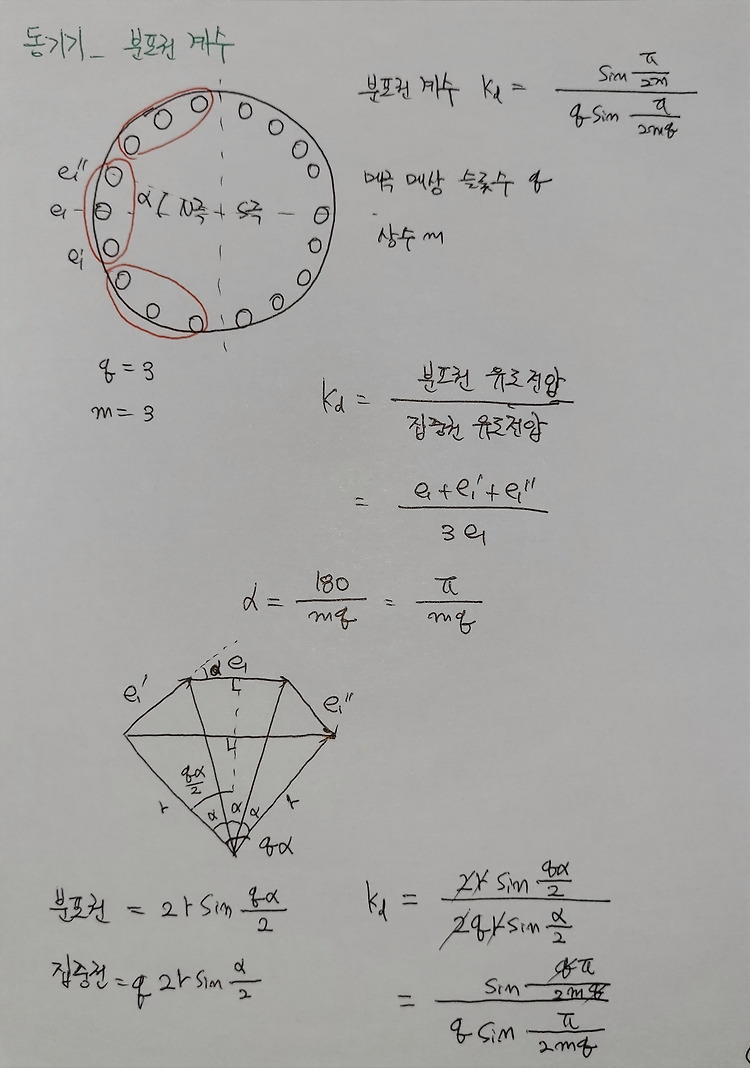 동기기_ 분포권 계수
분포권 계수 kd = sin π/2m / q sin π/2mq
매극 매상 슬롯수 q
상수 m
e₁''
e₁
e₁'
α N극 S극
q = 3
m = 3
kd = 분포권 유도전압 / 집중권 유도전압
= e₁ + e₁' + e₁'' / 3e₁
α = 180/mq = π/mq
α e₁
e₁' e₁''
qα/2
r α α α r
qα
분포권 = 2r sin qα/2
집중권 = q 2r sin α/2
kd = 2r sin qα/2 / 2qr sin α/2
= sin qπ/2mq / q sin π/2mq